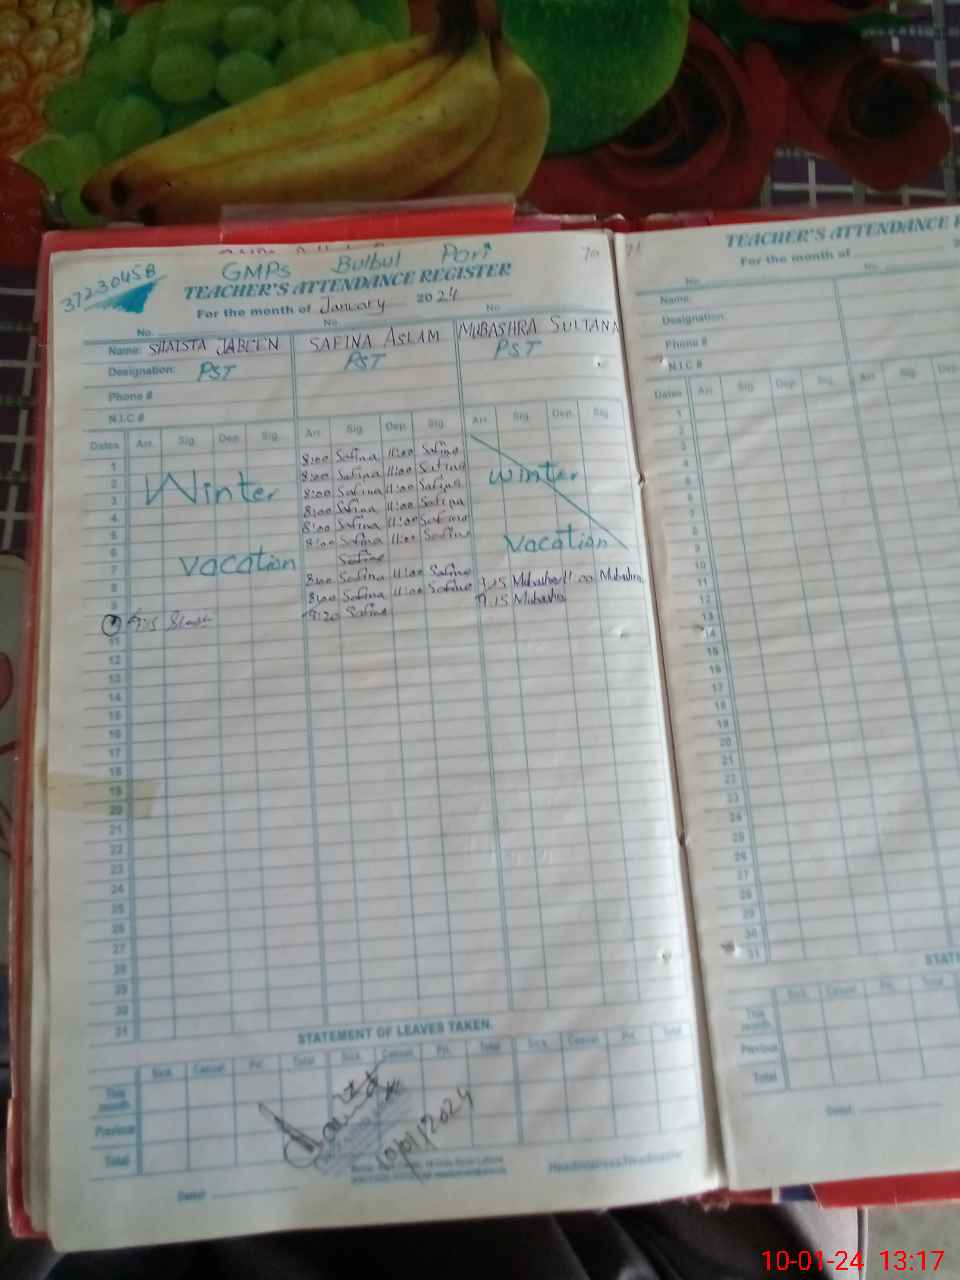 37230458
GMPS Bulbul Pori 70
TEACHER'S ATTENDANCE REGISTER
For the month of January 2024
No. No. No
Name: SHAISTA JABEEN SAFINA ASLAM MUBASHRA SULTANA
Designation: PST PST PST
Phone #
N.I.C #
Dates Arr. Sig. Dep. Sig. Arr. Sig. Dep. Sig. Arr. Sig. Dep. Sig.
1 8:00 Safina 11:00 Safina
2 8:00 Safina 11:00 Safina
3 Winter 8:00 Safina 11:00 Safina Winter
4 8:00 Safina 11:00 Safina
5 8:00 Safina 11:00 Safina
6 8:00 Safina 11:00 Safina
7 Vacation Safina Vacation
8 8:00 Safina 11:00 Safina 9:15 Mubashra 11:00 Mubashra
9 8:00 Safina 11:00 Safina 9:15 Mubashra
9:15 9:20 Safina
11
12
13
14
15
16
17
18
19
20
21
22
23
24
25
26
27
28
29
30
31
STATEMENT OF LEAVES TAKEN.
Sick. Casual. Pri. Total Sick. Casual. Pri. Total Sick. Casual. Pri. Total
This month
Previous
Total
10/01/2024
Dated
Headmistress/Headmaster
71
TEACHER'S ATTENDANCE
For the month of
No. No.
Name:
Designation:
Phone #
N.I.C #
Dates Arr. Sig. Dep. Sig. Arr. Sig. Dep.
1
2
3
4
5
6
7
8
9
10
11
12
13
14
15
16
17
18
19
20
21
22
23
24
25
26
27
28
29
30
31
Sick. Casual. Pri. Total
This month
Previous
Total
Dated
10-01-24 13:17